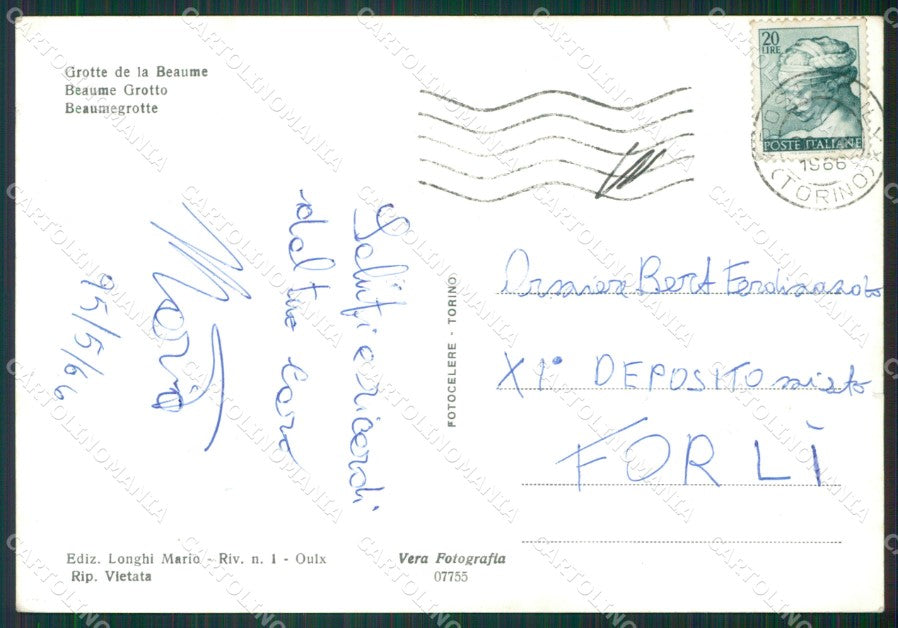 Grotte de la Beaume
Beaume Grotto
Beaumegrotte
20
LIRE
POSTE ITALIANE
1966
(TORINO)
Saluti e ricordi
dal tuo caro
Mario
25/5/66
FOTOCELERE - TORINO
Bert Ferdinando
XI° DEPOSITO misto
FORLÌ
Ediz. Longhi Mario - Riv. n. 1 - Oulx
Rip. Vietata
Vera Fotografia
07755
CARTOLINOMANIA